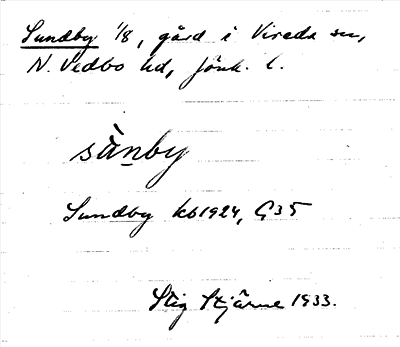 Sundby 1/8, gård i Vireda sn,
N. Vedbo hd, Jönk. l.
sànby
Sundby kb1924, G35
Stig Stjärne 1933.